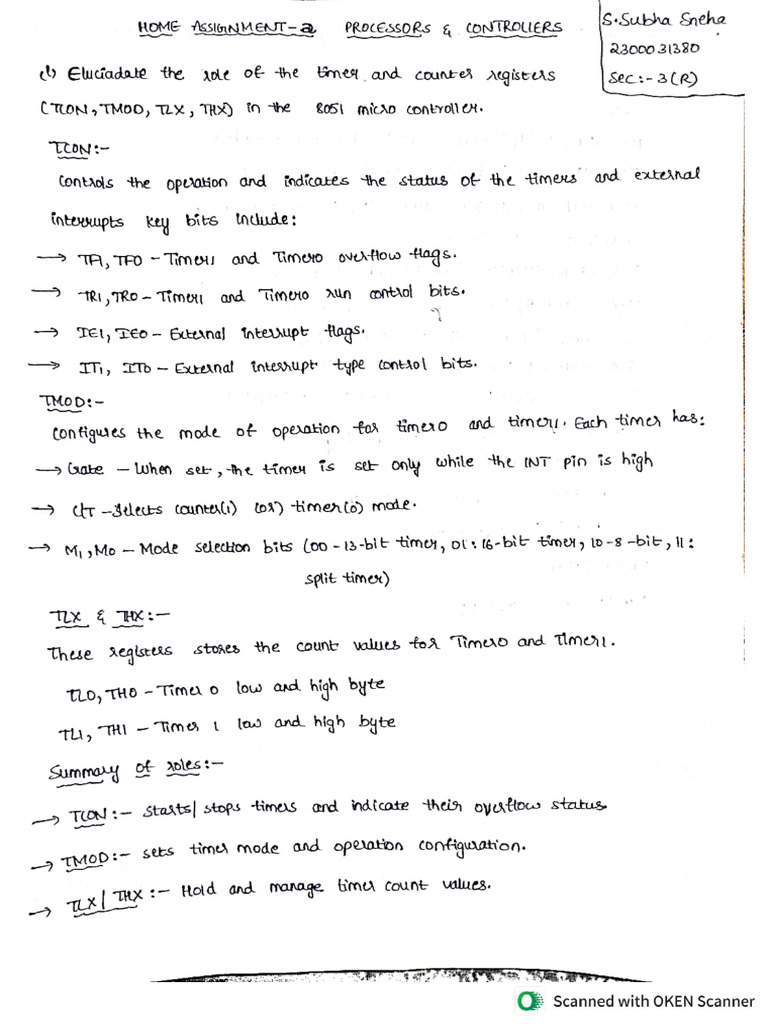 HOME ASSIGNMENT-2 PROCESSORS & CONTROLLERS
S.Subha Sneha
2300031380
Sec:- 3(R)
(1) Eluciadate the role of the timer and counter registers
(TCON, TMOD, TLX, THX) in the 8051 micro controller.
TCON:-
Controls the operation and indicates the status of the timers and external
interrupts key bits include:
→ TF1, TF0 - Timer1 and Timer0 overflow flags.
→ TR1, TR0 - Timer1 and Timer0 run control bits.
→ IE1, IE0 - External interrupt flags.
→ IT1, IT0 - External interrupt type control bits.
TMOD:-
Configures the mode of operation for timer0 and timer1. Each timer has:
→ Gate - When set, the timer is set only while the INT pin is high
→ C/T - Selects counter(1) (or) timer(0) mode.
→ M1, M0 - Mode selection bits (00 - 13-bit timer, 01: 16-bit timer, 10 - 8-bit, 11:
split timer)
TLX & THX:-
These registers stores the count values for Timer0 and Timer1.
TL0, TH0 - Timer 0 low and high byte
TL1, TH1 - Timer 1 low and high byte
Summary of roles:-
→ TCON:- Starts/stops timers and indicate their overflow status
→ TMOD:- sets timer mode and operation configuration.
→ TLX/THX:- Hold and manage timer count values.
Scanned with OKEN Scanner